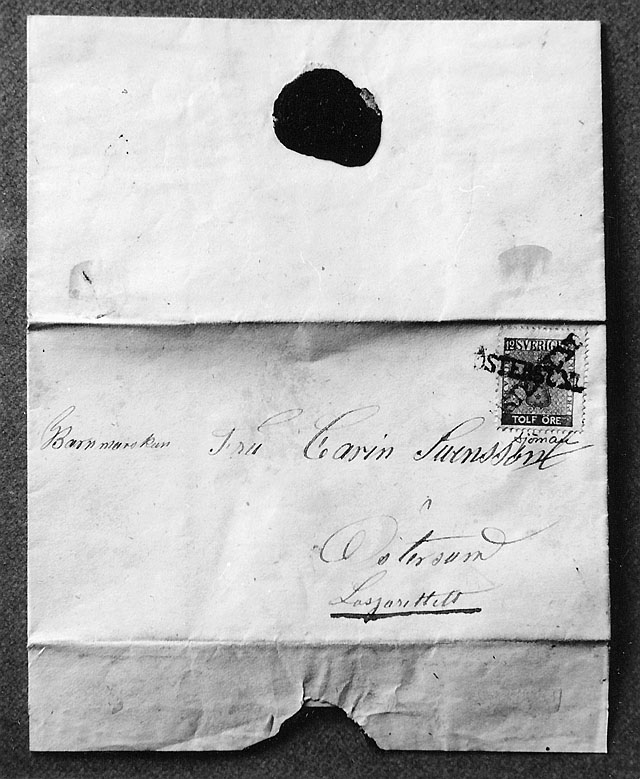 12 SVERIGE
ÖSTERSUND
TOLF ÖRE
sjöman
Barnmorskan Fru Carin Svensson
i
Östersund
Lasarettett